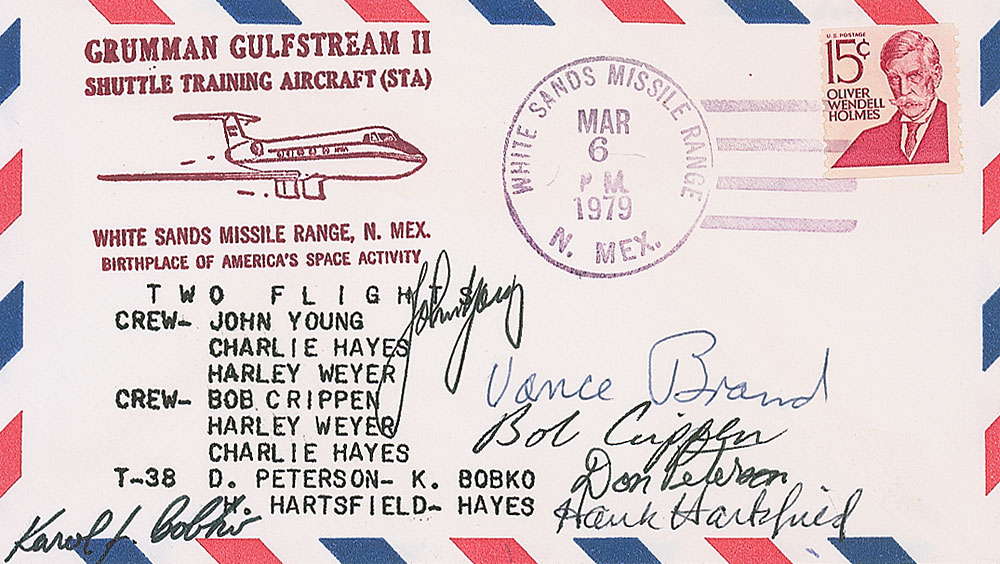 GRUMMAN GULFSTREAM II
SHUTTLE TRAINING AIRCRAFT (STA)
WHITE SANDS MISSILE RANGE, N. MEX.
BIRTHPLACE OF AMERICA'S SPACE ACTIVITY
WHITE SANDS MISSILE RANGE
MAR
6
P M.
1979
N. MEX.
U.S. POSTAGE
15¢
OLIVER
WENDELL
HOLMES
TWO FLIGHTS
CREW- JOHN YOUNG
CHARLIE HAYES
HARLEY WEYER
CREW- BOB CRIPPEN
HARLEY WEYER
CHARLIE HAYES
T-38 D. PETERSON- K. BOBKO
H. HARTSFIELD- HAYES
John Young
Vance Brand
Bob Crippen
Don Peterson
Hank Hartsfield
Karol J. Bobko